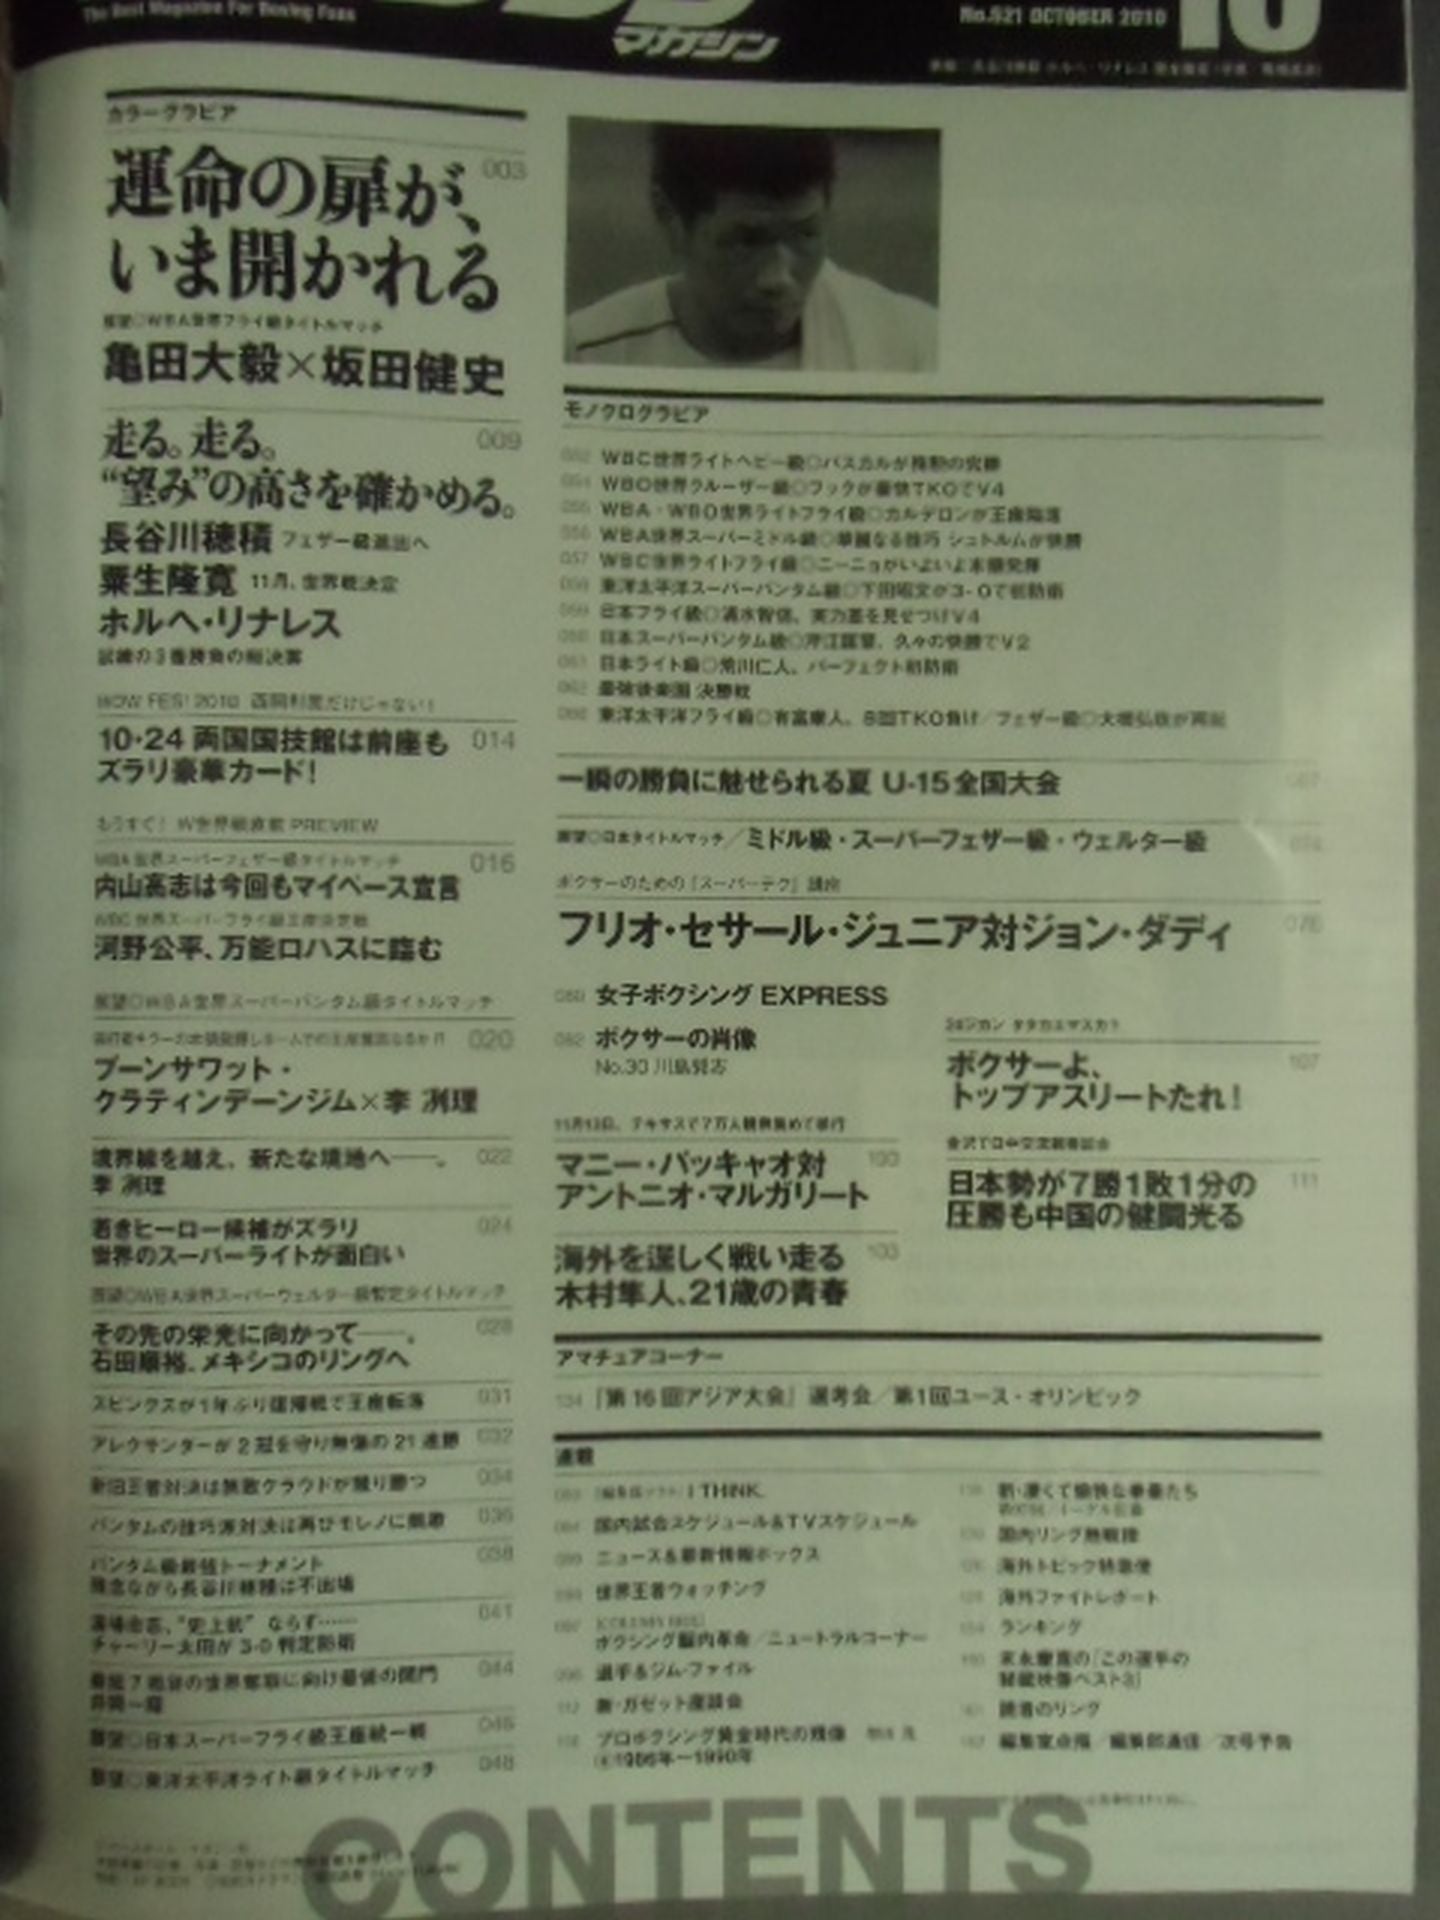 The Best Magazine For Boxing Fans
マガジン
No.521 OCTOBER 2010
10
カラーグラビア
運命の扉が、 003
いま開かれる
展望◎WBA世界フライ級タイトルマッチ
亀田大毅×坂田健史
走る。走る。 009
“望み”の高さを確かめる。
長谷川穂積 フェザー級進出へ
粟生隆寛 11月、世界戦決定
ホルヘ・リナレス
試練の3番勝負の総決算
WOW FES! 2010 西岡利晃だけじゃない!
10・24 両国国技館は前座も 014
ズラリ豪華カード!
もうすぐ! W世界戦直前 PREVIEW
WBA世界スーパーフェザー級タイトルマッチ 016
内山高志は今回もマイペース宣言
WBC世界スーパーフライ級王座決定戦
河野公平、万能ロハスに臨む
展望◎WBA世界スーパーバンタム級タイトルマッチ
020
プーンサワット・
クラティンデーンジム×李 冽理
境界線を越え、新たな境地へ――。 022
李 冽理
若きヒーロー候補がズラリ 024
世界のスーパーライトが面白い
展望◎WBA世界スーパーウェルター級暫定タイトルマッチ
その先の栄光に向かって――。 028
石田順裕、メキシコのリングへ
スピンクスが1年ぶり復帰戦で王座転落 031
アレクサンダーが2冠を守り無傷の21連勝 032
新旧王者対決は無敗クラウドが競り勝つ 034
バンタムの技巧派対決は再びモレノに凱歌 036
バンタム級最強トーナメント 038
残念ながら長谷川穂積は不出場
“史上初”ならず…… 041
チャーリー太田が3-0判定防衛
最短7戦目の世界奪取に向け最後の関門 044
井岡一翔
展望◎日本スーパーフライ級王座統一戦 046
展望◎東洋太平洋ライト級タイトルマッチ 048
モノクログラビア
WBC世界ライトヘビー級◎パスカルが殊勲の完勝
WBO世界クルーザー級◎フックが豪快TKOでV4
WBA・WBO世界ライトフライ級◎カルデロンが王座陥落
WBA世界スーパーミドル級◎華麗なる技巧 シュトルムが快勝
057 WBC世界ライトフライ級◎ニーニョがいよいよ本領発揮
東洋太平洋スーパーバンタム級◎下田昭文が3-0で初防衛
059 日本フライ級◎清水智信、実力差を見せつけV4
日本スーパーバンタム級◎芹江匡晋、久々の快勝でV2
061 日本ライト級◎荒川仁人、パーフェクト初防衛
最強後楽園 決勝戦
東洋太平洋フライ級◎有富康人、8回TKO負け/フェザー級◎大場弘敬が再起
一瞬の勝負に魅せられる夏 U-15全国大会
展望◎日本タイトルマッチ/ミドル級・スーパーフェザー級・ウェルター級
ボクサーのための「スーパーテク」講座
フリオ・セサール・ジュニア対ジョン・ダディ 076
080 女子ボクシング EXPRESS
082 ボクサーの肖像
No.30 川島賢志
11月13日、テキサスで7万人観衆集めて挙行
マニー・パッキャオ対 100
アントニオ・マルガリート
海外を逞しく戦い走る 103
木村隼人、21歳の青春
ボクサーよ、 107
トップアスリートたれ!
金沢で日中交流親善試合
日本勢が7勝1敗1分の 111
圧勝も中国の健闘光る
アマチュアコーナー
「第16回アジア大会」選考会/第1回ユース・オリンピック
連載
I THINK.
国内試合スケジュール&TVスケジュール
ニュース&最新情報ボックス
世界王者ウォッチング
ボクシング脳内革命/ニュートラルコーナー
選手&ジム・ファイル
新・ガゼット座談会
プロボクシング黄金時代の残像
1986年―1990年
新・凄くて愉快な拳豪たち
国内リング熱戦譜
海外トピック特急便
海外ファイトレポート
ランキング
末永慶寛の「この選手の
秘蔵映像ベスト3」
読者のリング
編集室点描/編集部通信/次号予告
CONTENTS